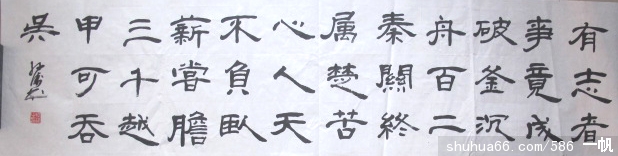 有志者
事竟成
破釜沉
舟百二
秦關終
属楚苦
心人天
不負臥
薪嘗膽
三千越
甲可吞
吳
shuhua66.com/586 一帆